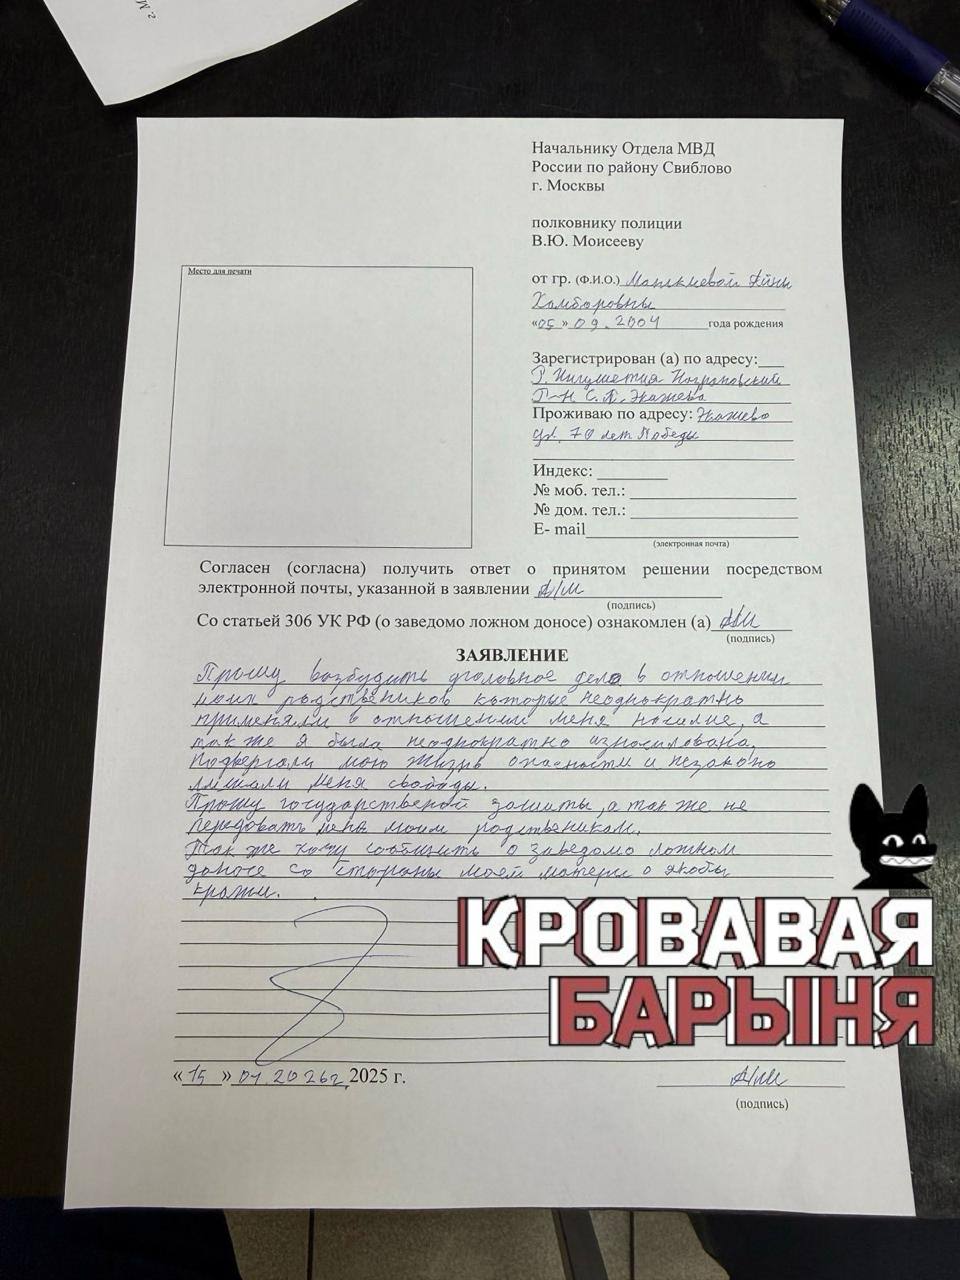 Начальнику Отдела МВД
России по району Свиблово
г. Москвы
полковнику полиции
В.Ю. Моисееву
Место для печати
от гр. (Ф.И.О.) Манкиевой Айны
Хамборовны
«05» 09.2004 года рождения
Зарегистрирован (а) по адресу:
Р. Ингушетия
Р-н С.П. Экажево
Проживаю по адресу: Экажево
ул. 70 лет Победы
Индекс:
№ моб. тел.:
№ дом. тел.:
E- mail
(электронная почта)
Согласен (согласна) получить ответ о принятом решении посредством
электронной почты, указанной в заявлении
(подпись)
Со статьей 306 УК РФ (о заведомо ложном доносе) ознакомлен (а)
(подпись)
ЗАЯВЛЕНИЕ
Прошу возбудить уголовное дело в отношении
моих родственников которые неоднократно
применяли в отношении меня насилие, а
так же я была неоднократно изнасилована,
Подвергали мою жизнь опасности и незаконо
лишали меня свободы.
Прошу государственой защиты, а так же не
передовать меня моим родственикам.
Так же хочу сообщить о заведомо ложном
доносе со стороны моей матери о якобы
кражи.
КРОВАВАЯ
БАРЫНЯ
«15» 01.2026г. 2025 г.
(подпись)